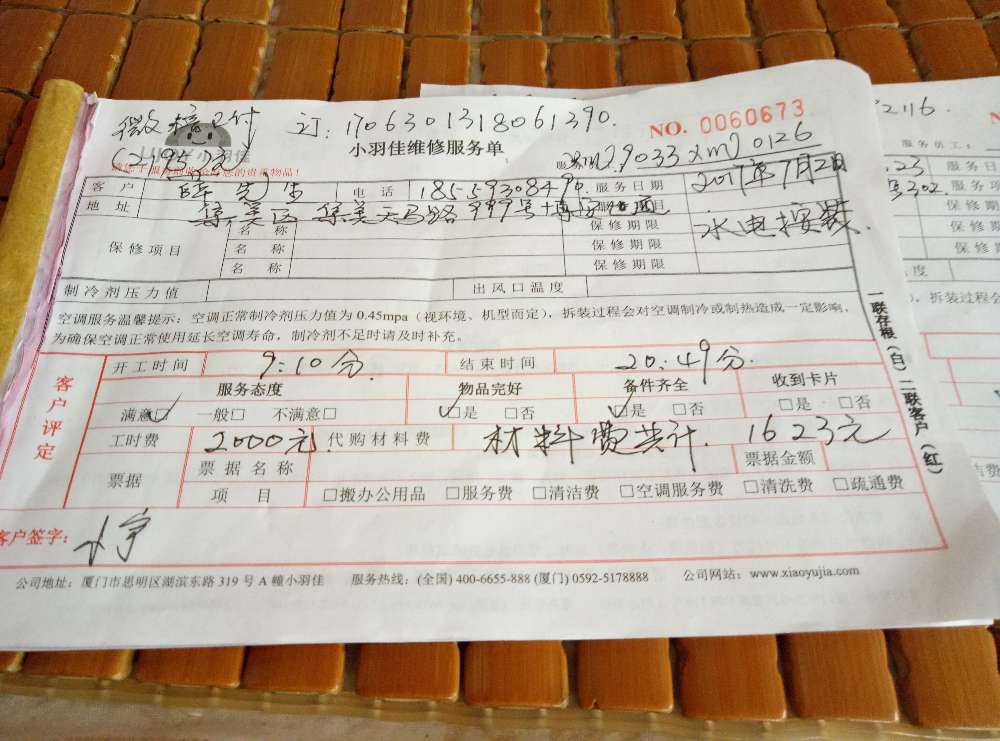 订:1706301318061390. NO. 0060673
小羽佳
小羽佳维修服务单
客 户 薛先生 电 话 服务日期 2017年7月2日
地 址 集美区 集美天马路999号
水电按装.
保修项目
名 称 保修期限
名 称 保修期限
名 称 保修期限
制冷剂压力值 出风口温度
空调服务温馨提示:空调正常制冷剂压力值为 0.45mpa(视环境、机型而定),拆装过程会对空调制冷或制热造成一定影响,
为确保空调正常使用延长空调寿命,制冷剂不足时请及时补充。
客户评定
开工时间 9:10分. 结束时间 20:49分.
服务态度 物品完好 备件齐全 收到卡片
满意☑ 一般□ 不满意□ ☑是 □否 ☑是 □否 □是 □否
工时费 2000元. 代购材料费 材料费共计. 1623元
票据 票据名称 票据金额
项 目 □搬办公用品 □服务费 □清洁费 □空调服务费 □清洗费 □疏通费
客户签字:
一联存根(白)二联客户(红)
公司地址:厦门市思明区湖滨东路 319 号 A 幢小羽佳 服务热线:(全国) 400-6655-888 (厦门) 0592-5178888 公司网站:www.xiaoyujia.com
2116.
服务员工:
保修期限
保修期限
保修期限